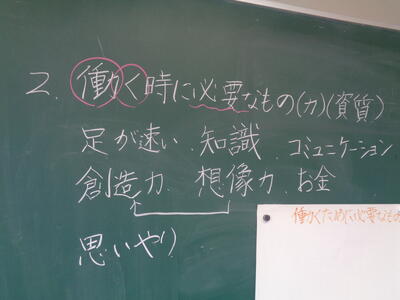 2. 働く時に必要なもの(力)(資質)
足が速い、知識、コミュニケーション
創造力、想像力、お金
思いやり
働くために必要なもの